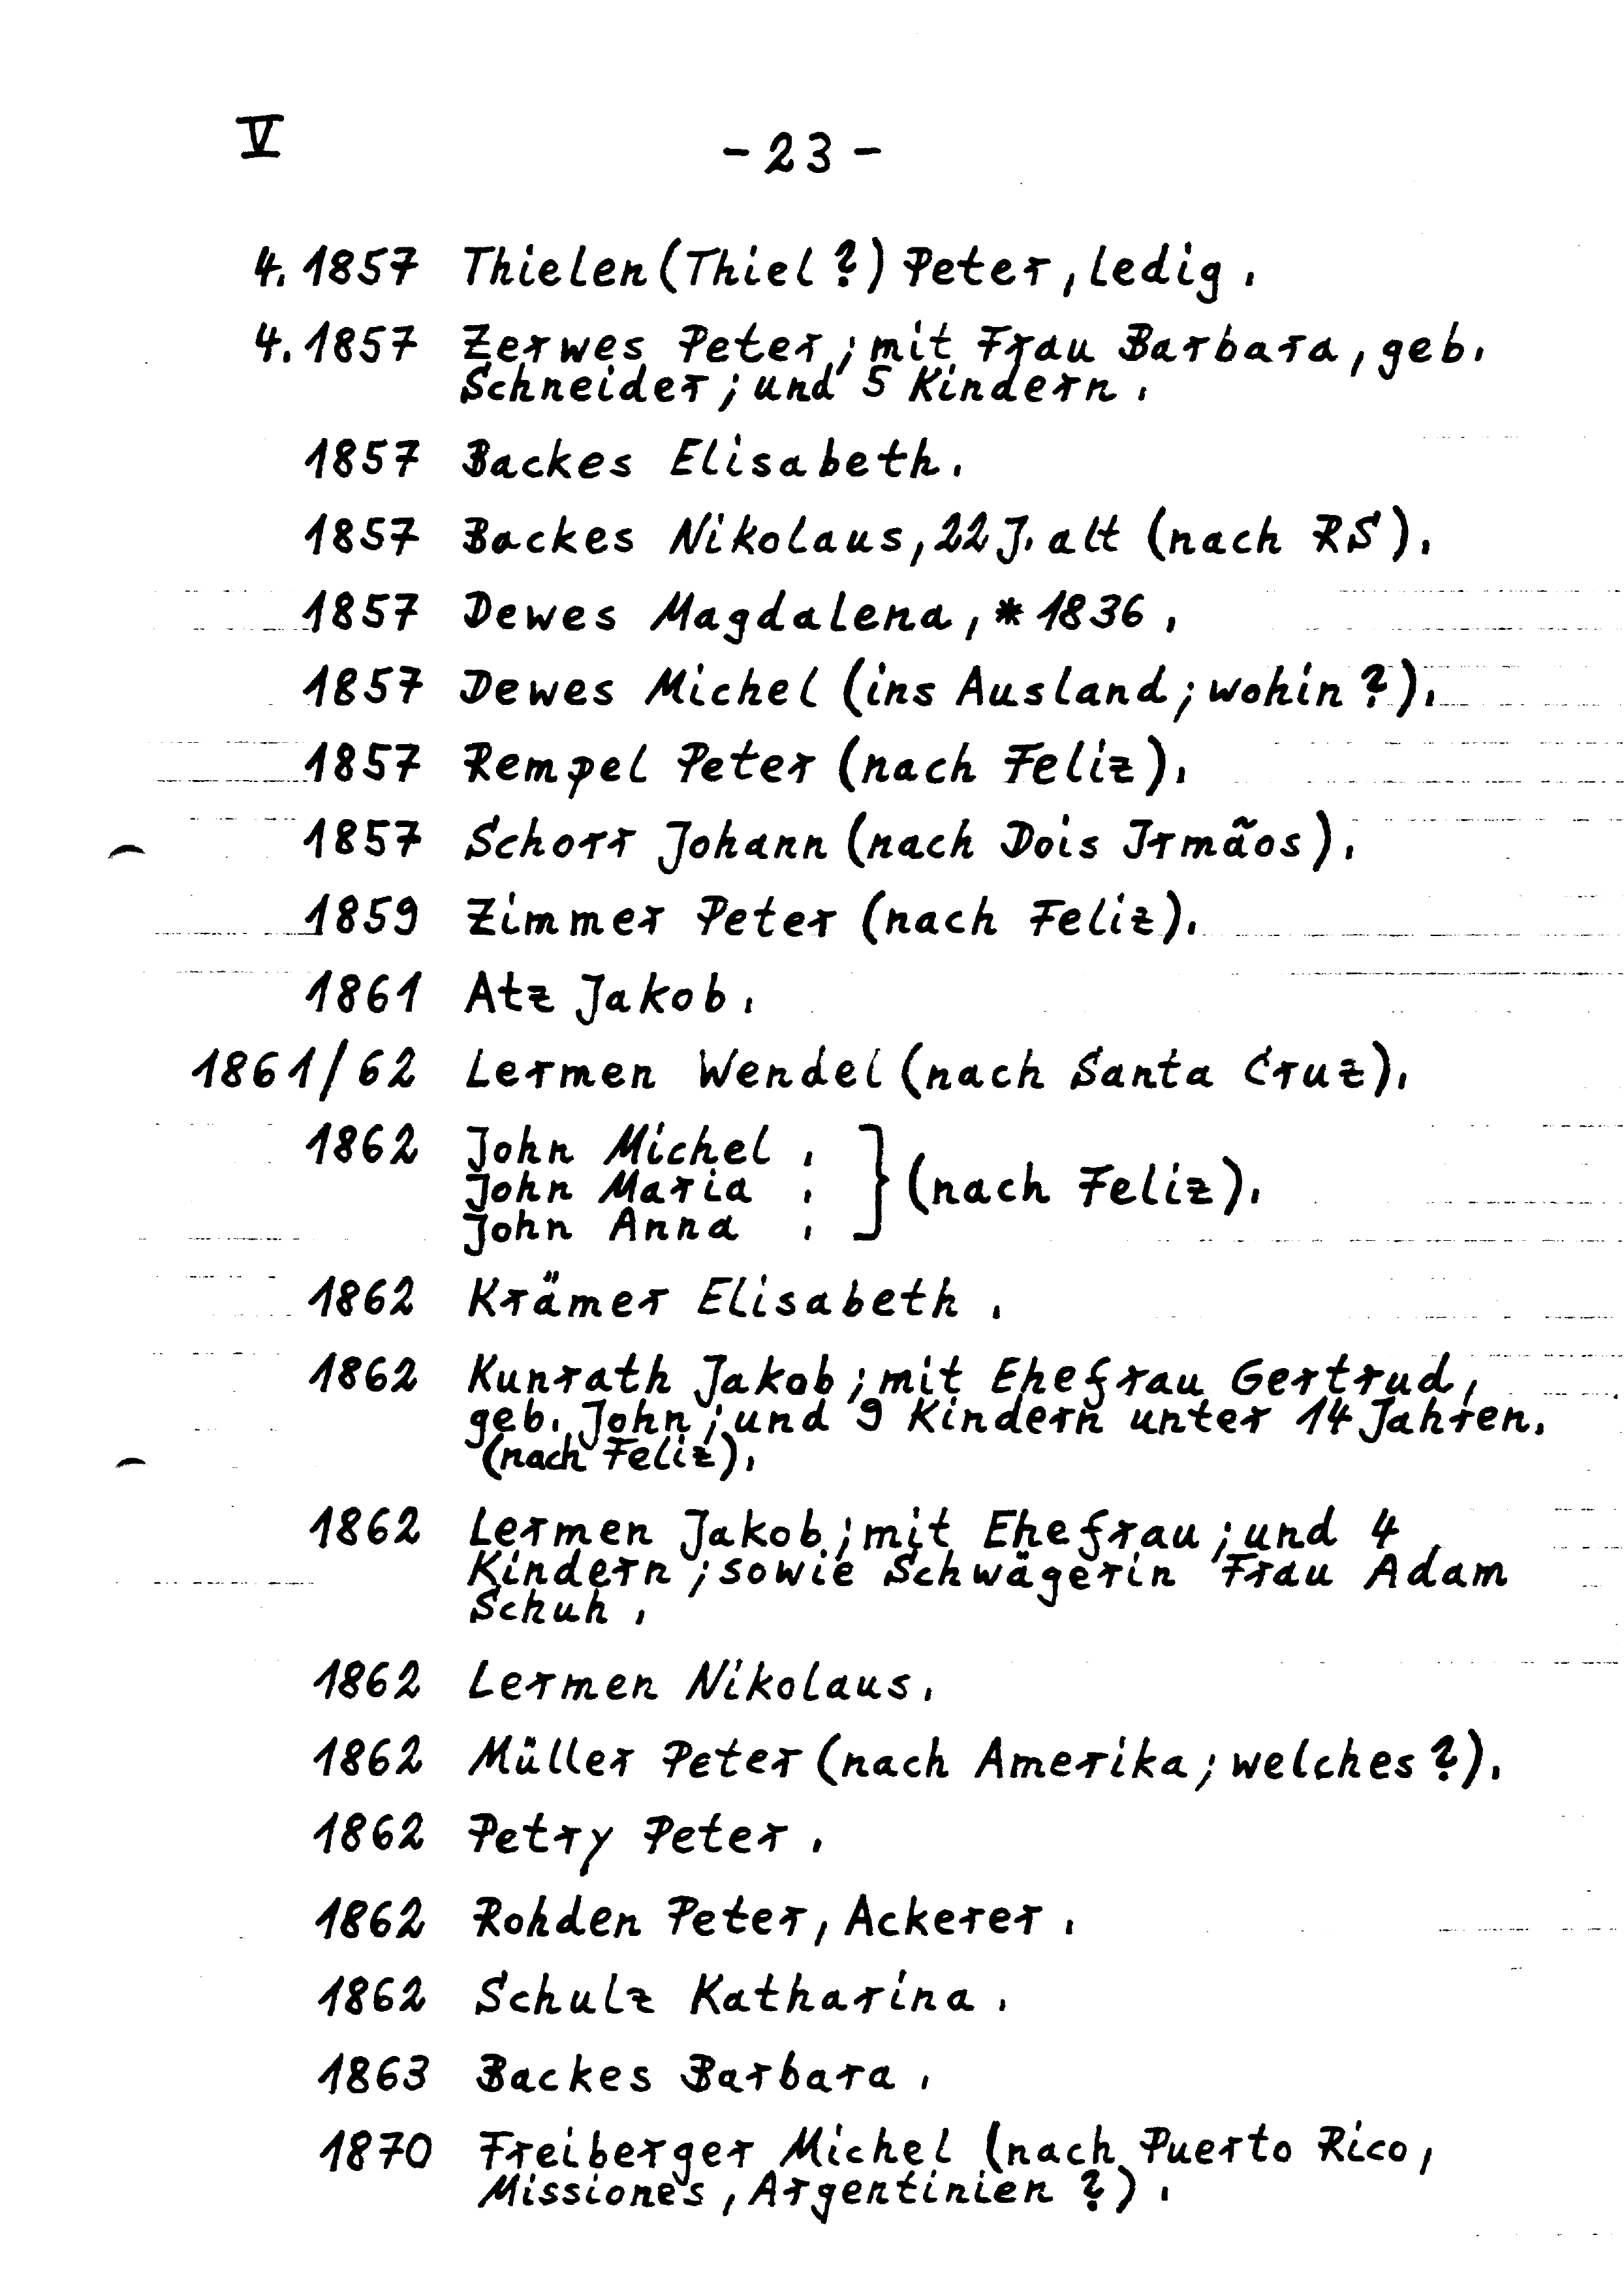 V
- 23 -
4. 1857 Thielen (Thiel?) Peter, ledig.
4. 1857 Zerwes Peter; mit Frau Barbara, geb.
Schneider; und 5 Kindern.
1857 Backes Elisabeth.
1857 Backes Nikolaus, 22 J. alt (nach RS).
1857 Dewes Magdalena, * 1836.
1857 Dewes Michel (ins Ausland; wohin?).
1857 Rempel Peter (nach Feliz).
1857 Schorr Johann (nach Dois Irmãos).
1859 Zimmer Peter (nach Feliz).
1861 Atz Jakob.
1861/62 Lermen Wendel (nach Santa Cruz).
1862 John Michel.
John Maria. } (nach Feliz).
John Anna.
1862 Krämer Elisabeth.
1862 Kunrath Jakob; mit Ehefrau Gertrud,
geb. John; und 9 Kindern unter 14 Jahren.
(nach Feliz).
1862 Lermen Jakob; mit Ehefrau; und 4
Kindern; sowie Schwägerin Frau Adam
Schuh.
1862 Lermen Nikolaus.
1862 Müller Peter (nach Amerika; welches?).
1862 Petry Peter.
1862 Rohden Peter, Ackerer.
1862 Schulz Katharina.
1863 Backes Barbara.
1870 Freiberger Michel (nach Puerto Rico,
Missiones, Argentinien?).